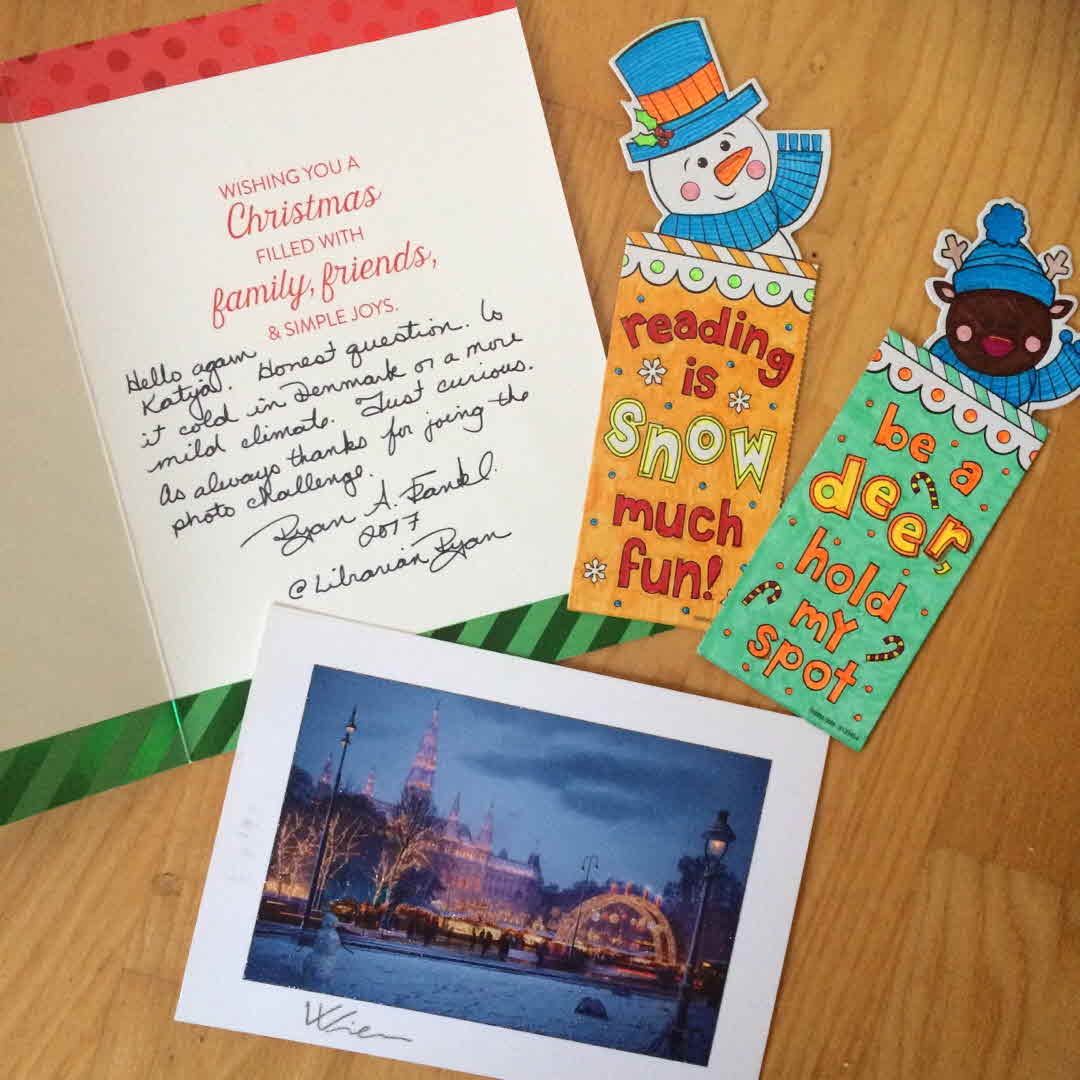 WISHING YOU A
Christmas
FILLED WITH
family, friends,
& SIMPLE JOYS.
Hello again
Katja. Honest question. Is
it cold in Denmark or a more
mild climate. Just curious.
As always thanks for joing the
photo challenge.
Ryan A. Frankl.
2017
@LibrarianRyan
reading
is
snow
much
fun!
be a
deer,
hold
my
spot
Wien